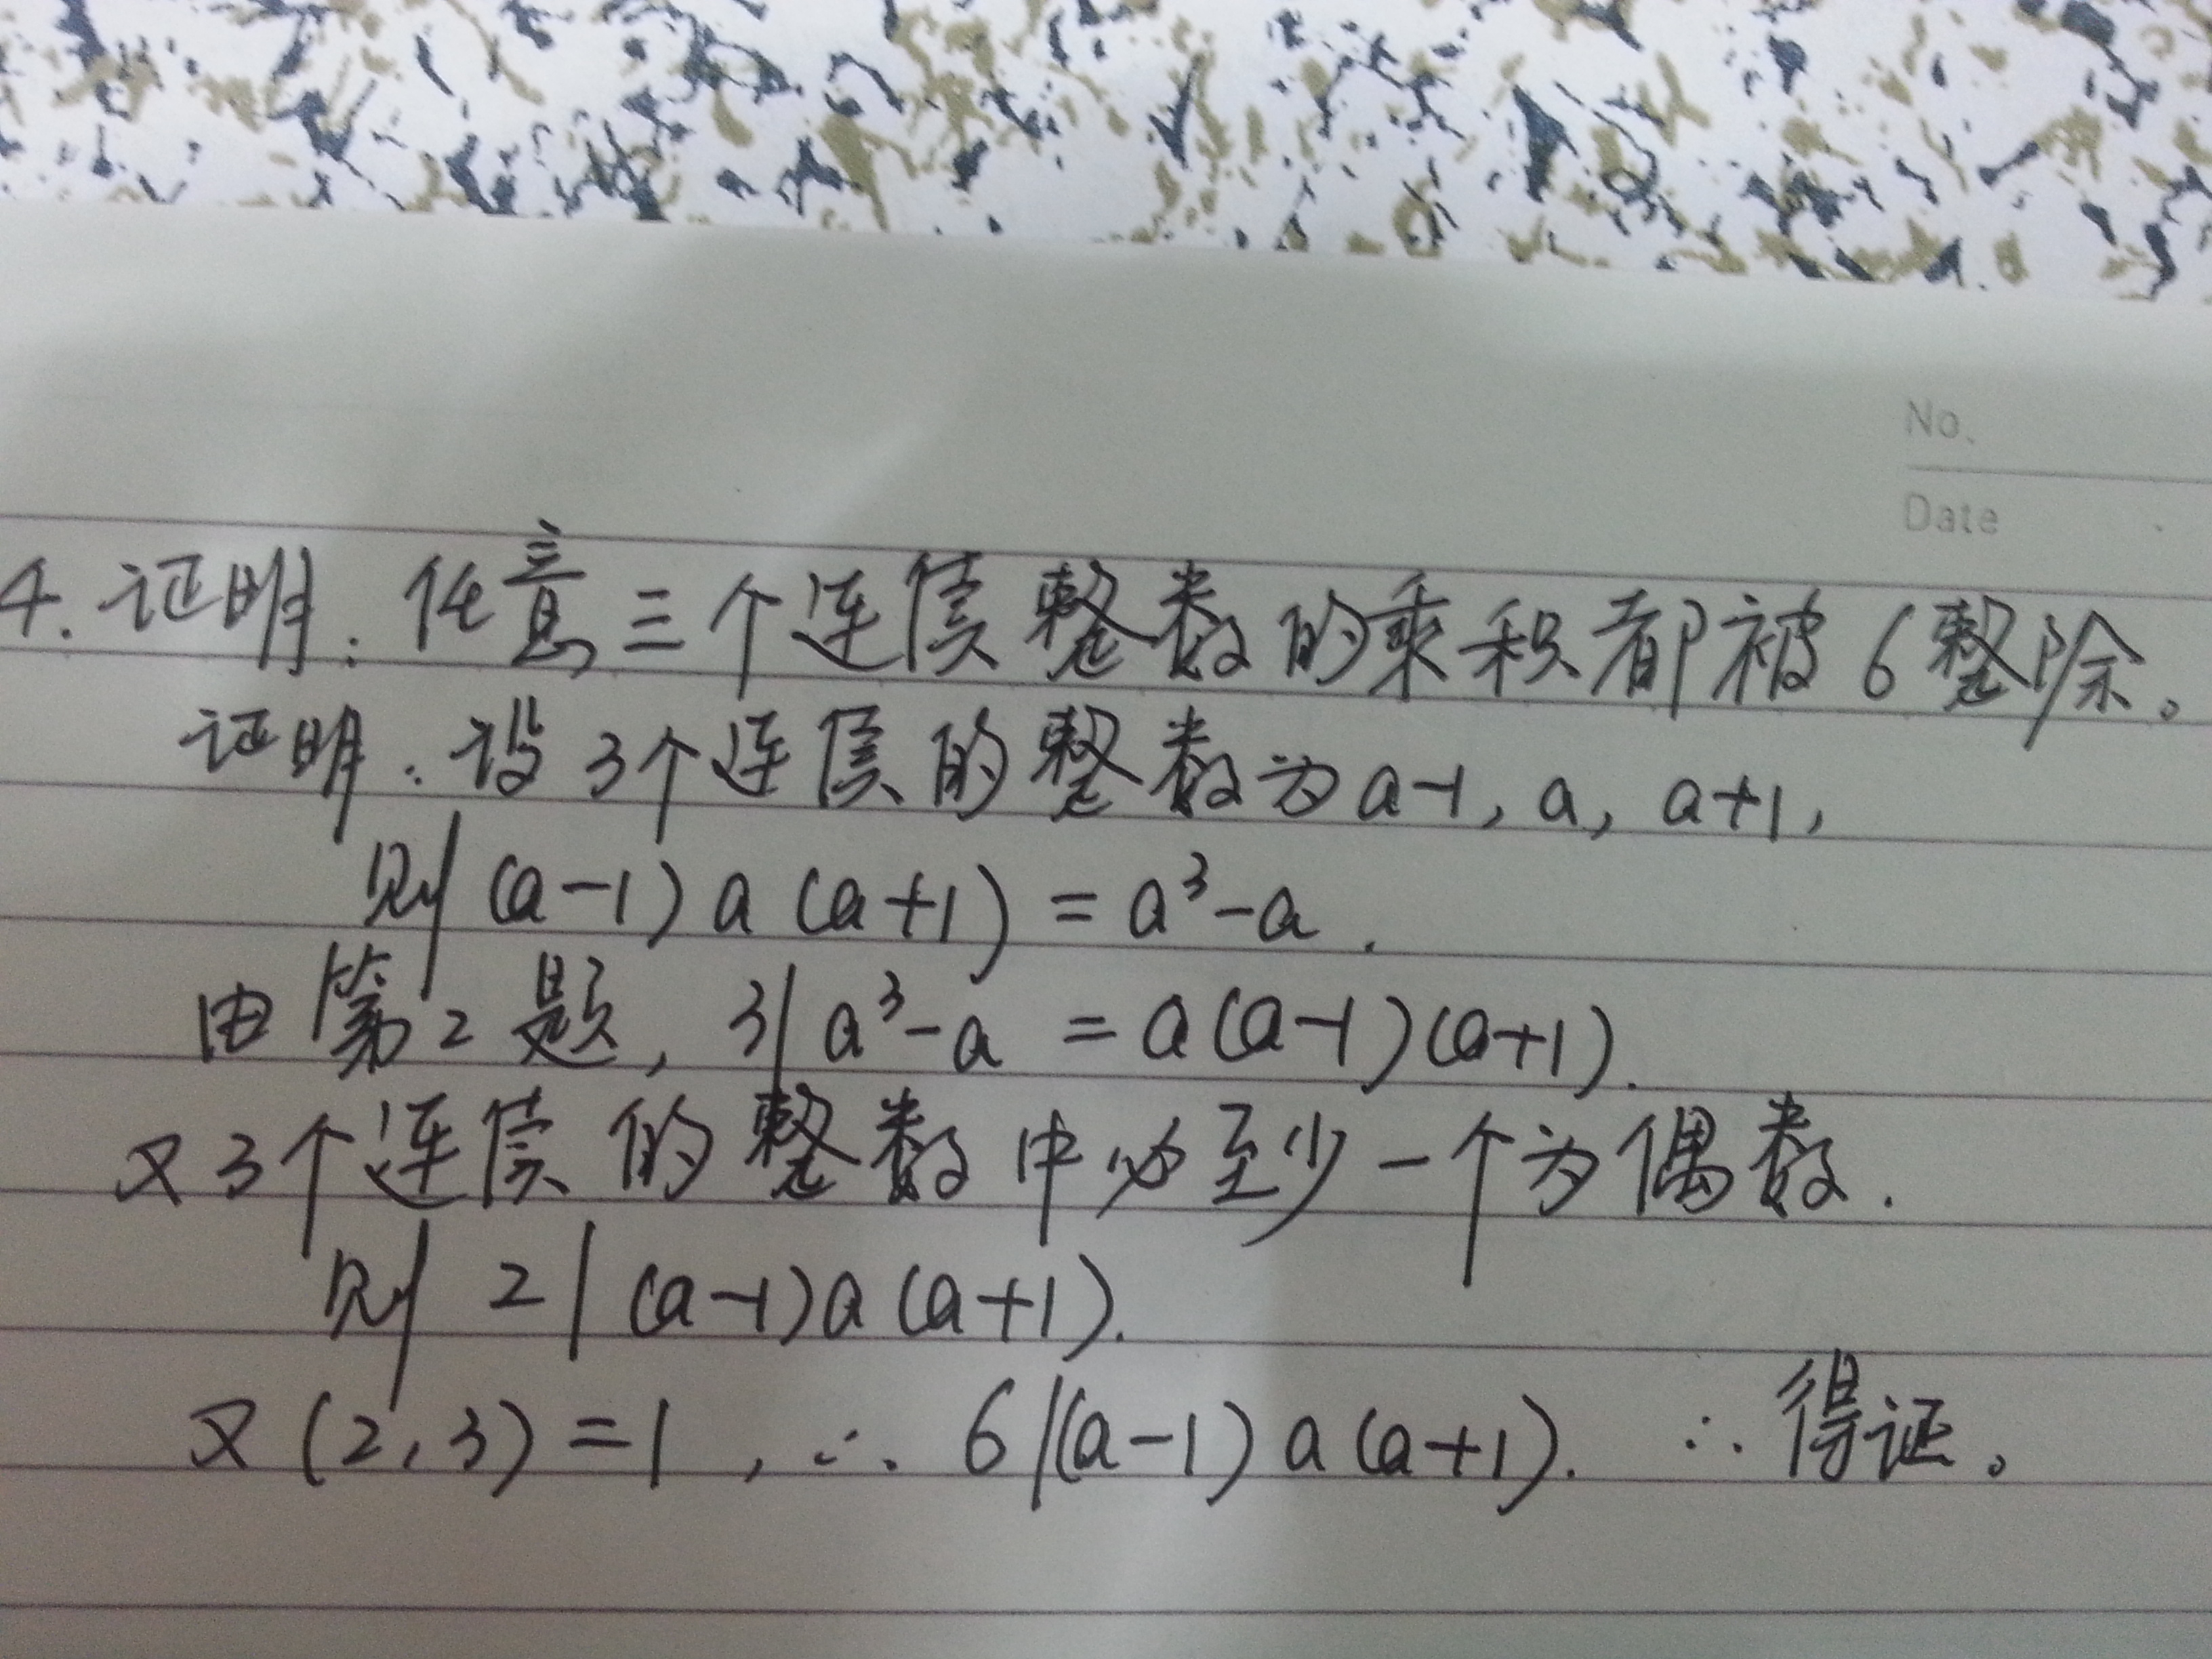 No.
Date
4. 证明: 任意三个连续整数的乘积都被6整除。
证明: 设3个连续的整数为a-1, a, a+1,
则 (a-1) a (a+1) = a³-a.
由第2题, 3|a³-a = a(a-1)(a+1).
又3个连续的整数中必至少一个为偶数.
则 2|(a-1)a(a+1).
又(2,3)=1, ∴ 6|(a-1)a(a+1). ∴得证。